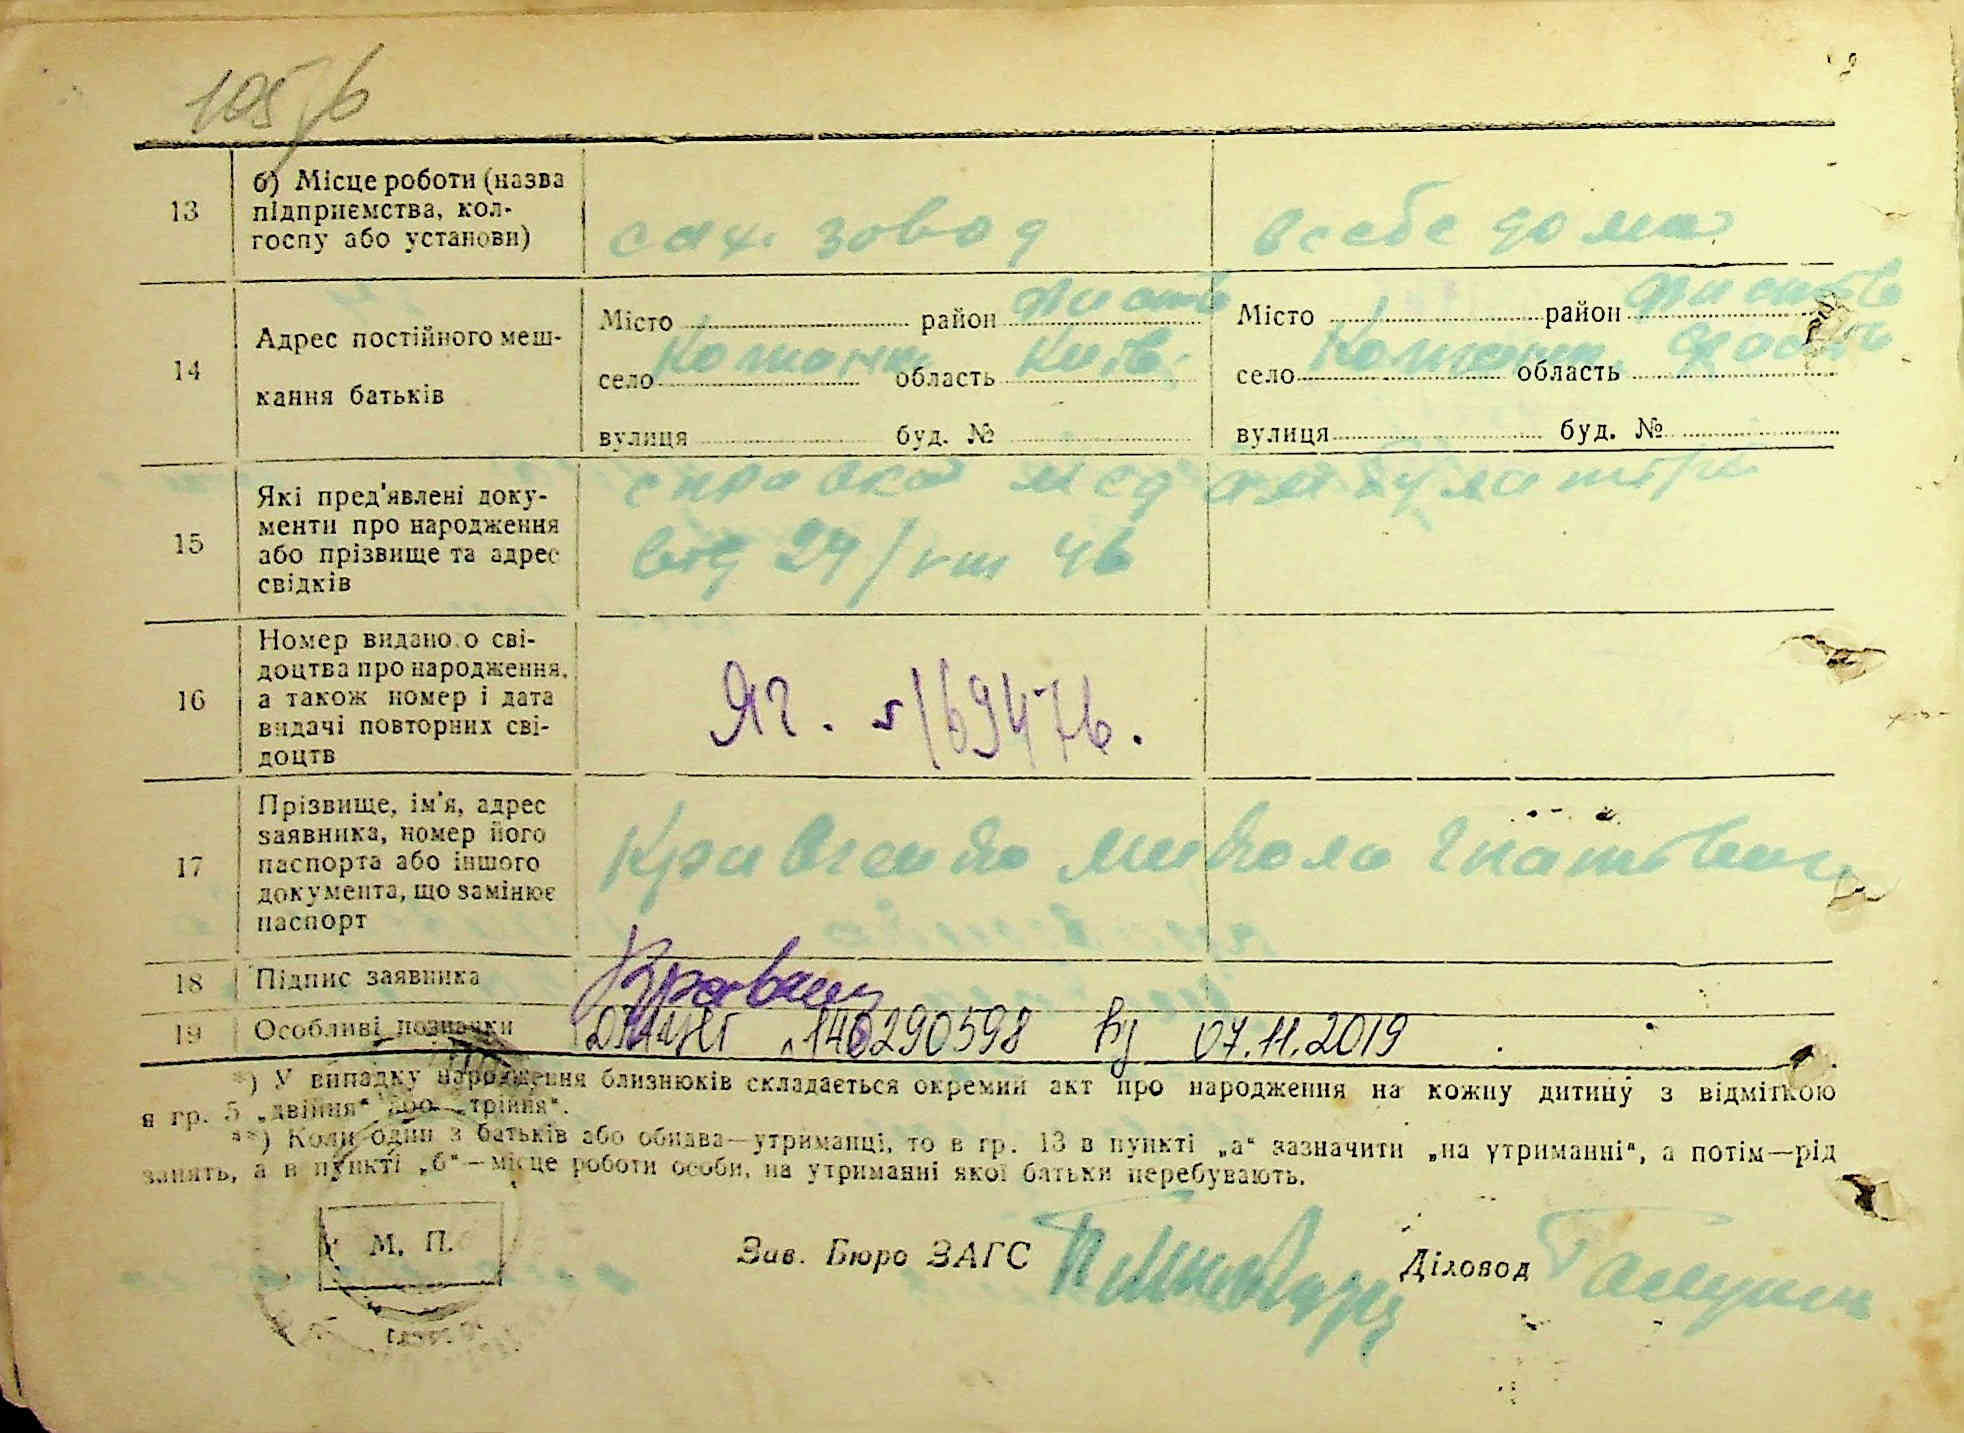 105/6
13
б) Місце роботи (назва
підприємства, кол-
госпу або установи)
сах. завод
в себе дома
14
Адрес постійного меш-
кання батьків
Місто район Фастів
село Кожанк область Київ.
вулиця буд. №
Місто район Фастів
село Кожанк область
вулиця буд. №
15
Які пред'явлені доку-
менти про народження
або прізвище та адрес
свідків
справка мед амбулаторії
від 24/VIII 46
16
Номер видано.о сві-
доцтва про народження,
а також номер і дата
видачі повторних сві-
доцтв
ЯГ. 169476.
17
Прізвище, ім'я, адрес
заявника, номер його
паспорта або іншого
документа, що замінює
паспорт
Кравченко Микола Гнатович
18
Підпис заявника
19
Особливі позначки
140290598 від 07.11.2019
*) У випадку народження близнюків складається окремий акт про народження на кожну дитину з відміткою
в гр. 5 „двійня“ або „трійня“.
**) Коли один з батьків або обидва—утриманці, то в гр. 13 в пункті „а“ зазначити „на утриманні“, а потім—рід
занять, а в пункті „б“—місце роботи особи, на утриманні якої батьки перебувають.
М. П.
Зав. Бюро ЗАГС
Діловод